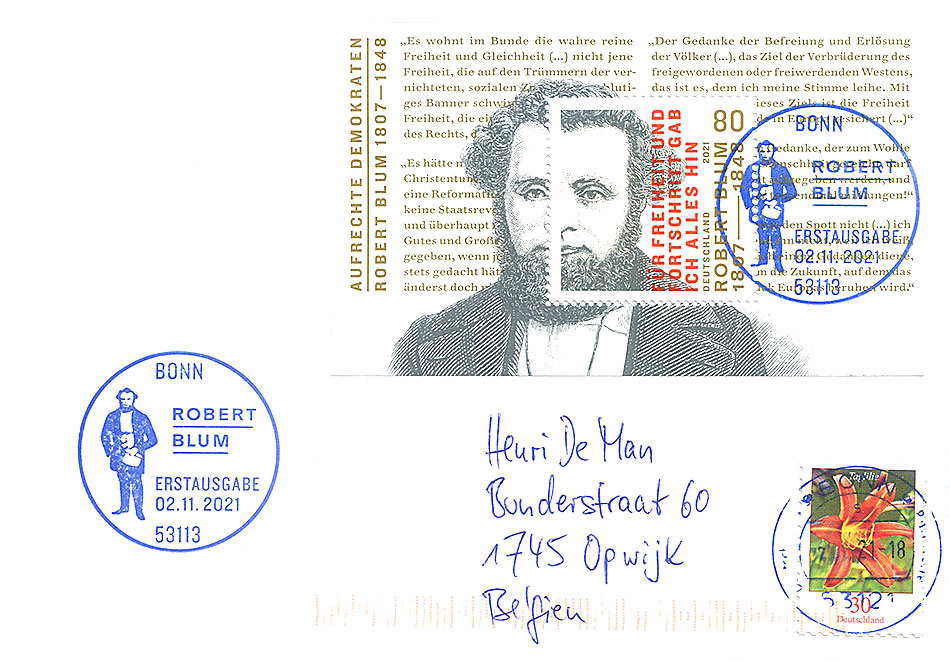 AUFRECHTE DEMOKRATEN
ROBERT BLUM 1807—1848
„Es wohnt im Bunde die wahre reine
Freiheit und Gleichheit (...) nicht jene
Freiheit, die auf den Trümmern der ver-
nichteten, sozialen
ges Banner
Freiheit, die
des Rechts,
„Es hätte
Christentum
eine Reformati
keine Staatsrev
und überhaupt
Gutes und Große
gegeben, wenn
stets gedacht hät
änderst doch
„Der Gedanke der Befreiung und Erlösung
der Völker (...), das Ziel der Verbrüderung des
freigewordenen oder freiwerdenden Westens,
das ist es, dem ich meine Stimme leihe. Mit
ieses Ziels ist die Freiheit
in Europa gesichert (...)“
Gedanke, der zum Wohle
den Spott nicht (...) ich
m die Zukunft, auf dem das
Europas beruhen wird.“
FÜR FREIHEIT UND
FORTSCHRITT GAB
ICH ALLES HIN
DEUTSCHLAND 2021
80
ROBERT BLUM
1807—1848
BONN
ROBERT
BLUM
ERSTAUSGABE
02.11.2021
53113
BONN
ROBERT
BLUM
ERSTAUSGABE
02.11.2021
53113
Henri De Man
Bonderstraat 60
1745 Opwijk
Belgien
BONN
21-18
53121
30
Deutschland